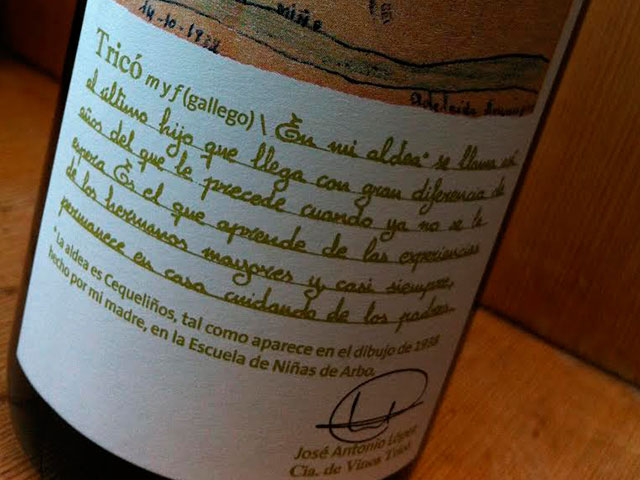 14-10-1938
MIÑO
Tricó m y f (gallego) \ En mi aldea* se llama así
el último hijo que llega con gran diferencia de
años del que le precede cuando ya no se le
espera Es el que aprende de las experiencias
de los hermanos mayores y, casi siempre,
permanece en casa cuidando de los padres.
*La aldea es Cequeliños, tal como aparece en el dibujo de 1938
hecho por mi madre, en la Escuela de Niñas de Arbo.
José Antonio López
Cía. de Vinos Tricó